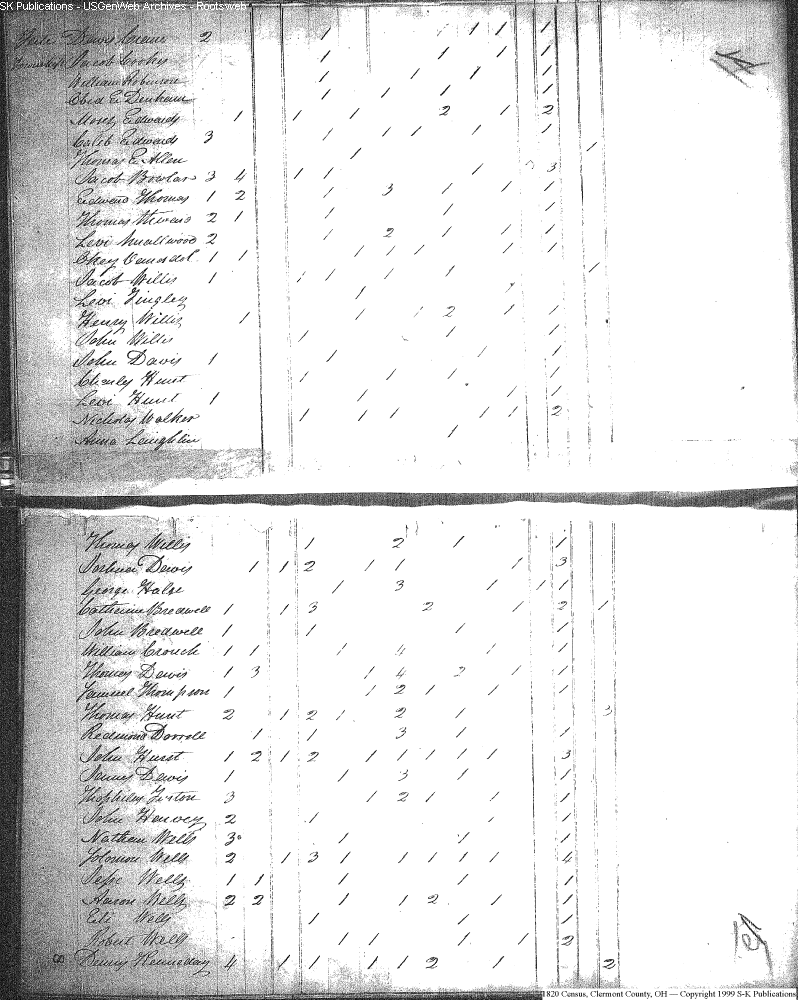 SK Publications - USGenWeb Archives - Rootsweb
Davis 2 1 1 1 1 1
Jacob 1 1 1 1
William Robinson 1 1 1 1
Obed E Denham 1 1 1 1
Moses Edwards 1 1 1 2 1 2
Caleb Edwards 3 1 1 1 1 1
Thomas E Allen 1 1
Jacob Bowlar 3 4 1 1 1 3
Edward Thomas 1 2 1 3 1 1 1
Thomas Stevens 2 1 1 1 1
Levi Smallwood 2 1 2 1 1 1
1 1 1 1 1 1 1
Jacob Willis 1 1 1 1 1 1 1
Levi Tingley 1 1
Henry Willis 1 1 1 2 1 1
John Willis 1 1 1
John Davis 1 1 1 1
Charles Hunt 1 1 1 1
Levi Hunt 1 1 1 1
Nicholas Walker 1 1 1 1 1 2
Anna Laughlin 1
Thomas Willis 1 2 1 1
Joshua Davis 1 1 2 1 1 1 3
George 1 3 1 1 1
Catherine Bredwell 1 1 3 2 1 2 1
John Bredwell 1 1 1 1
William Crouch 1 1 1 4 1 1
Thomas Davis 1 3 1 4 2 1 1
Samuel Thompson 1 1 2 1 1 1
Thomas Hunt 2 1 2 1 2 1 3
Redmond 1 1 3 1 1
John Hurst 1 2 1 2 1 1 1 1 1 3
James Davis 1 1 3 1 1
3 1 2 1 1 1
John Harvey 2 1 1 1
Nathan Wells 3 1 1 1
Solomon Wells 2 1 3 1 1 1 1 1 4
Wells 1 1 1 1 1
Aaron Wells 2 2 1 1 2 1 1
Wells 1 1 1
Robert Wells 1 1 1 1 2
8 Kenneday 4 1 1 1 1 2 1 2
1820 Census, Clermont County, OH — Copyright 1999 S-K Publications